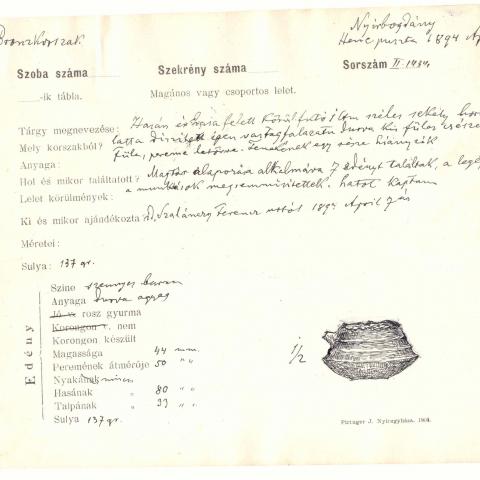 Bronzkorszak
Nyirbogdány
Heric puszta 1894 Ap
Szoba száma
Szekrény száma
Sorszám II. 1434.
-ik tábla.
Magános vagy csoportos lelet.
Tárgy megnevezése: Hasán és felett körülfutó széles sekély
Mely korszakból? diszitett épen vastagfalazatu durva kis füles csésze
Anyaga: Füle, pereme letörve. Fenekének egy része hiányzik
Hol és mikor találtatott? Magtár alaporása alkalmára 7 edényt találtak, a
Lelet körülmények: a munkások megsemmisitettek. hatot kaptam
Ki és mikor ajándékozta Ferencz 189 April 7én
Méretei:
Sulya: 137 gr.
Edény
Szine szennyes barna
Anyaga durva agyag
Jó v. rosz gyurma
Korongon v. nem
Korongon készült
Magassága 44 mm.
Peremének átmérője 50 " "
Nyakának nincs
Hasának " 80 " "
Talpának " 33 " "
Sulya 137 gr.
1/2
Pirtuger J. Nyiregyháza, 1904.